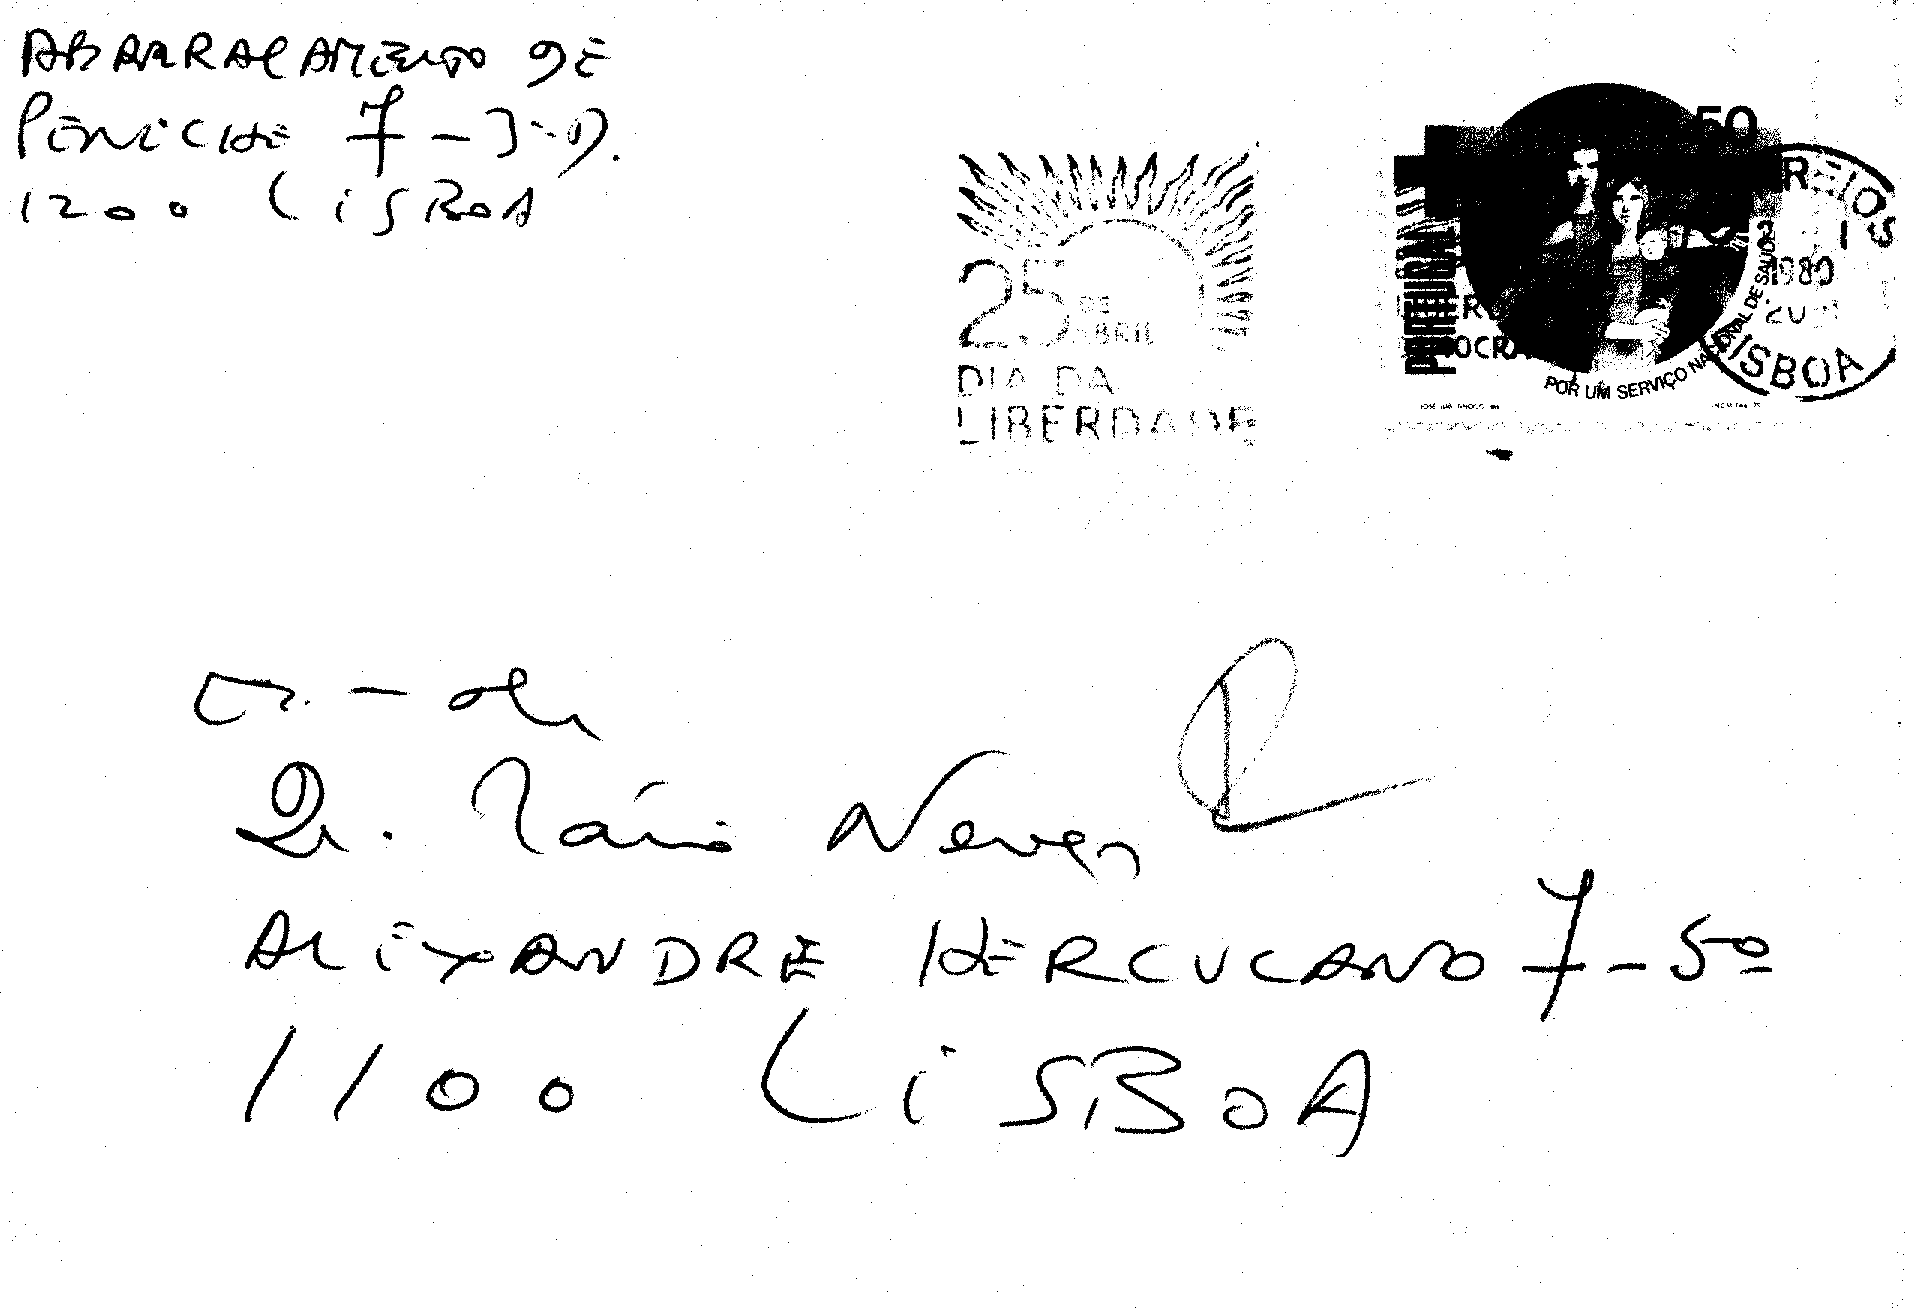 ABARRACAMENTO DE
PENICHE 7 - 3-D.
1200 LISBOA
25 DE ABRIL
DIA DA
LIBERDADE
50
PORTUGAL
POR UM SERVIÇO NACIONAL DE SAÚDE
CORREIOS
1980
LISBOA
Dr. Mário Neves
ALEXANDRE HERCULANO 7-5º
1100 LISBOA